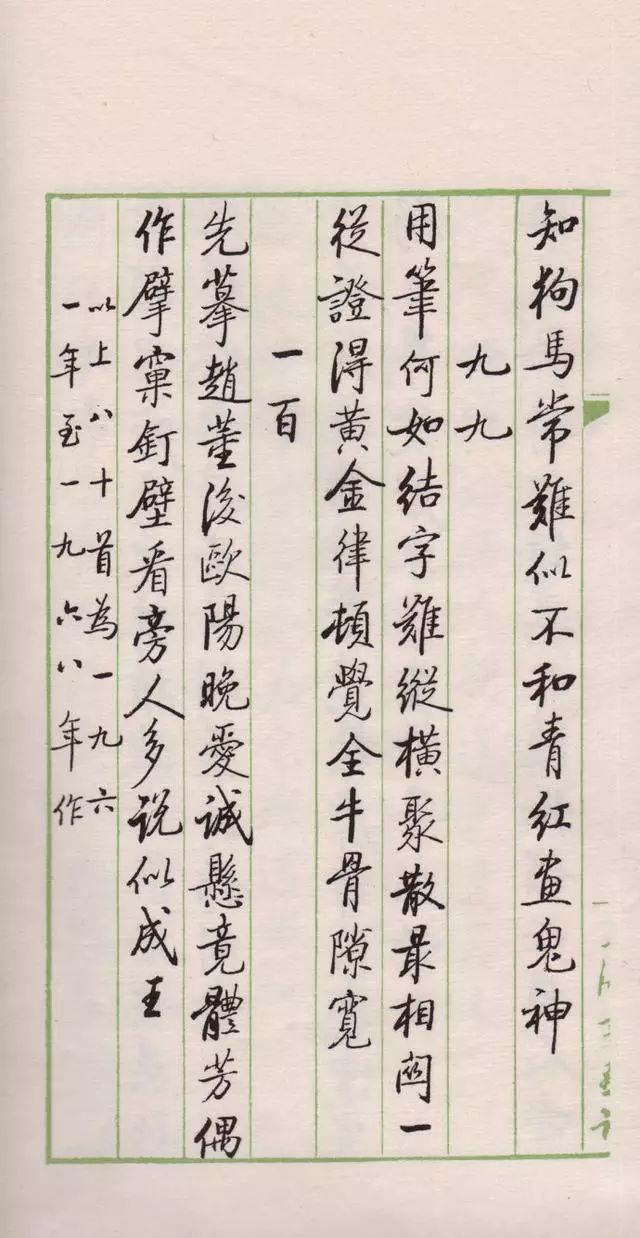 知狗馬常難似不和青红畫鬼神
九九
用筆何如結字難縱橫聚散最相関一
從證得黄金律頓覺全牛骨隙寬
一百
先摹趙董後歐陽晚愛誠懸竟體芳偶
作擘窠釘壁看旁人多说似成王
以上八十首為一九六
一年至一九六八年作